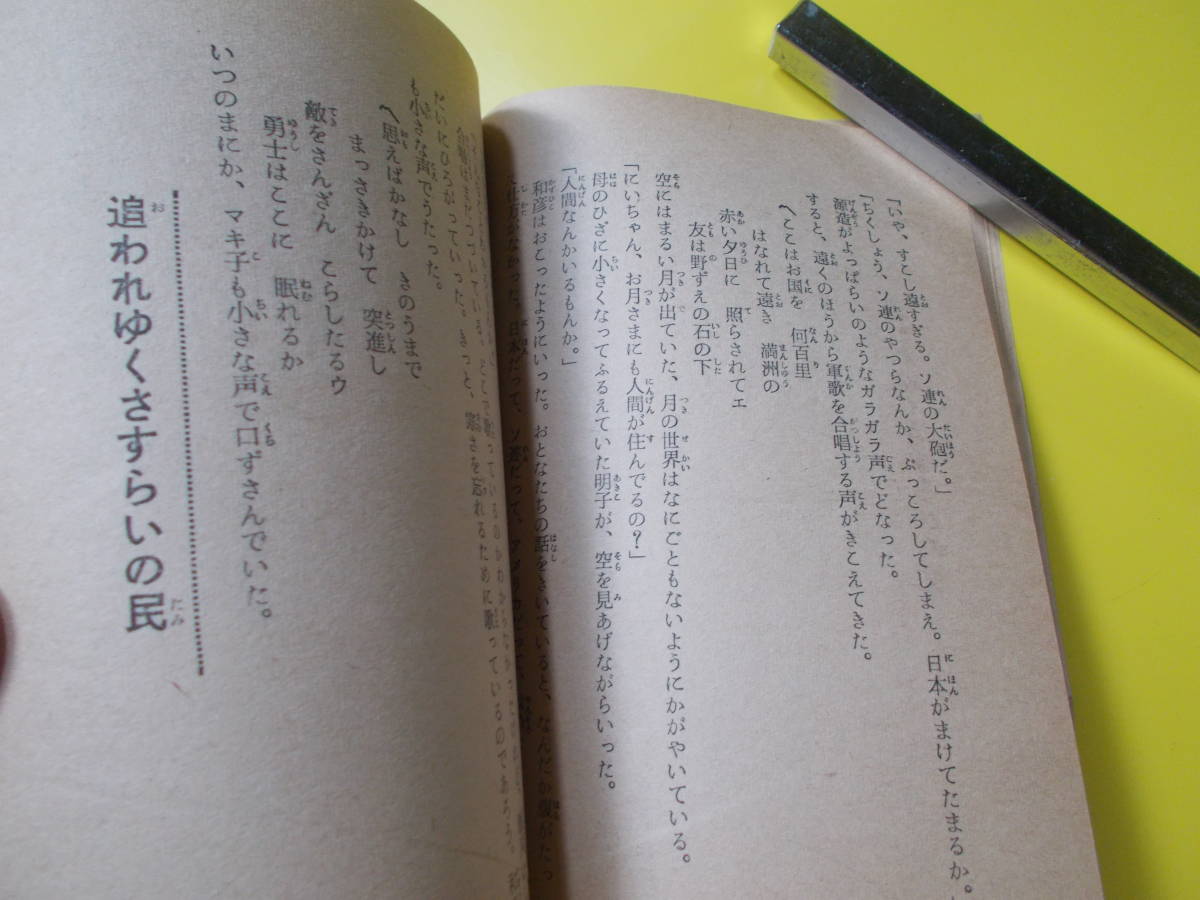 「いや、すこし遠すぎる。ソ連の大砲だ。」
「ちくしょう、ソ連のやつらなんか、ぶっころしてしまえ。日本がまけてたまるか。
源造がよっぱらいのようなガラガラ声でどなった。
すると、遠くのほうから軍歌を合唱する声がきこえてきた。
〽ここはお国を　何百里
はなれて遠き　満洲の
赤い夕日に　照らされてェ
友は野ずえの石の下
空にはまるい月が出ていた。月の世界はなにごともないようにかがやいている。
「にいちゃん、お月さまにも人間が住んでるの？」
母のひざに小さくなってふるえていた明子が、空を見あげながらいった。
「人間なんかいるもんか。」
和彦はおこったようにいった。おとなたちの話をきいていると、なんだか腹がたっ
仕方がなかった。日本だって、ソ連だって、
合唱はまだつづいている。どこで歌っているのかわからなかった
だいにひろがっていった。きっと、寒さを忘れるために歌っているのであろう。
も小さな声でうたった。
〽思えばかなし　きのうまで
まっさきかけて　突進し
敵をさんざん　こらしたるゥ
勇士はここに　眠れるか
いつのまにか、マキ子も小さな声で口ずさんでいた。
追われゆくさすらいの民